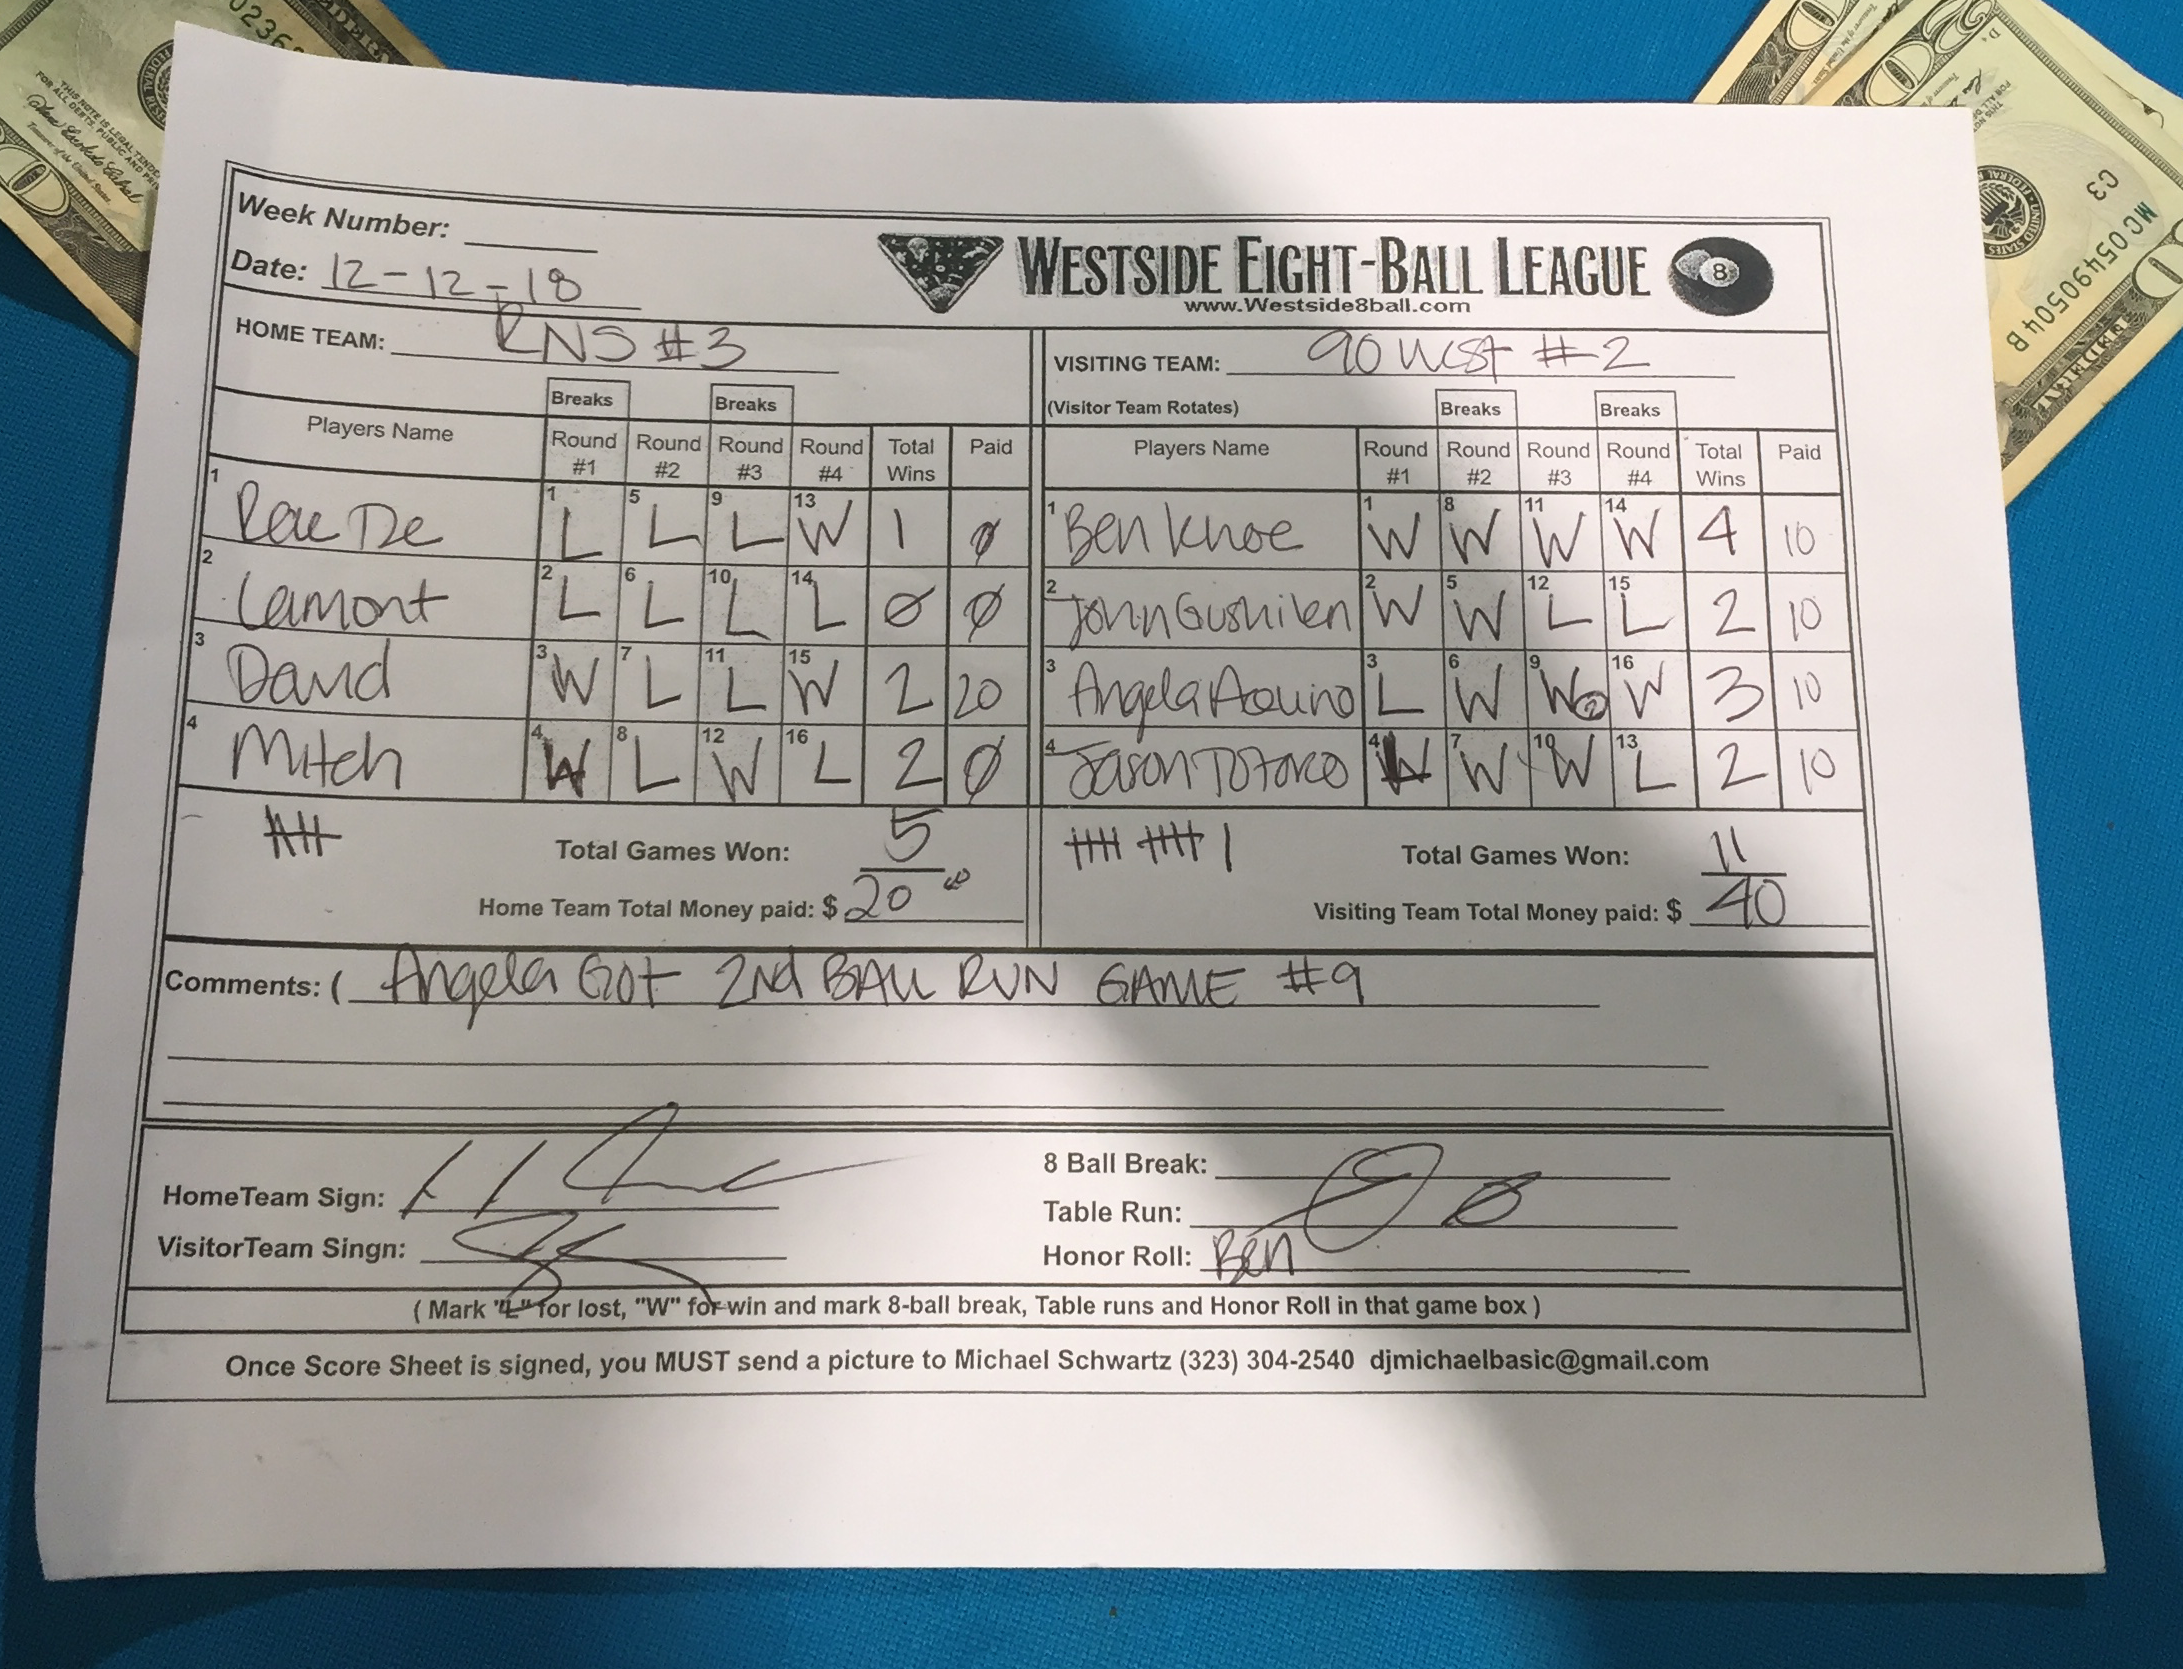 Week Number:
Date: 12-12-18
WESTSIDE EIGHT-BALL LEAGUE 8
www.Westside8ball.com
HOME TEAM: RNS #3
Breaks Breaks
Players Name Round #1 Round #2 Round #3 Round #4 Total Wins Paid
1 Rae De 1 L 5 L 9 L 13 W 1 0
2 Lamont 2 L 6 L 10 L 14 L 0 0
3 David 3 W 7 L 11 L 15 W 2 20
4 Mitch 4 W 8 L 12 W 16 L 2 0
Total Games Won: 5
Home Team Total Money paid: $ 20
VISITING TEAM: 90 West #2
(Visitor Team Rotates) Breaks Breaks
Players Name Round #1 Round #2 Round #3 Round #4 Total Wins Paid
1 Ben Khoe 1 W 8 W 11 W 14 W 4 10
2 John Gushiken 2 W 5 W 12 L 15 L 2 10
3 Angela Aquino 3 L 6 W 9 W 2 16 W 3 10
4 Jason 4 7 W 10 W 13 L 2 10
Total Games Won: 11
Visiting Team Total Money paid: $ 40
Comments: ( Angela Got 2nd BALL RUN GAME #9
HomeTeam Sign:
VisitorTeam Singn:
8 Ball Break:
Table Run:
Honor Roll: Ben
( Mark "L" for lost, "W" for win and mark 8-ball break, Table runs and Honor Roll in that game box )
Once Score Sheet is signed, you MUST send a picture to Michael Schwartz (323) 304-2540 djmichaelbasic@gmail.com
0236
FEDERAL
THIS NOTE IS LEGAL TENDER
FOR ALL DEBTS, PUBLIC AND PRI
Treasurer of the United States.
C3
MC 05490504 B
FEDERAL